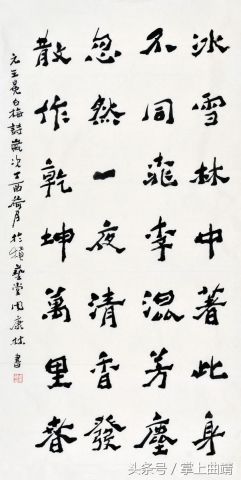 冰雪林中著此身
不同桃李混芳塵
忽然一夜清香發
散作乾坤萬里春
元王冕白梅詩歲次丁酉荷月於藝堂周康林書
头条号 / 掌上曲靖